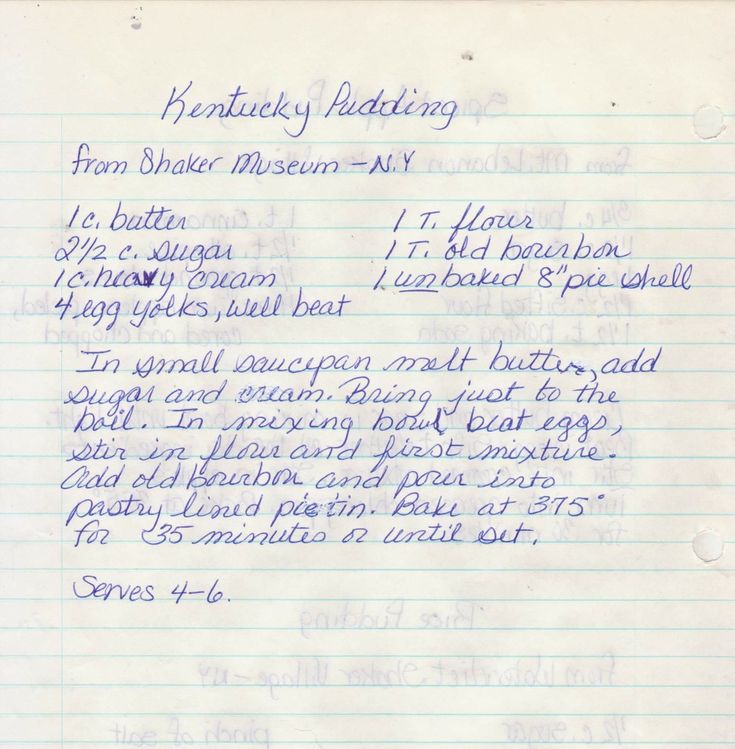 Kentucky Pudding
from Shaker Museum - N.Y
1 c. butter
2 1/2 c. sugar
1 c. heavy cream
4 egg yolks, well beat
1 T. flour
1 T. old bourbon
1 unbaked 8" pie shell
In small saucepan melt butter, add
sugar and cream. Bring just to the
boil. In mixing bowl, beat eggs,
stir in flour and first mixture.
Add old bourbon and pour into
pastry lined pie tin. Bake at 375°
for 35 minutes or until set.
Serves 4-6.